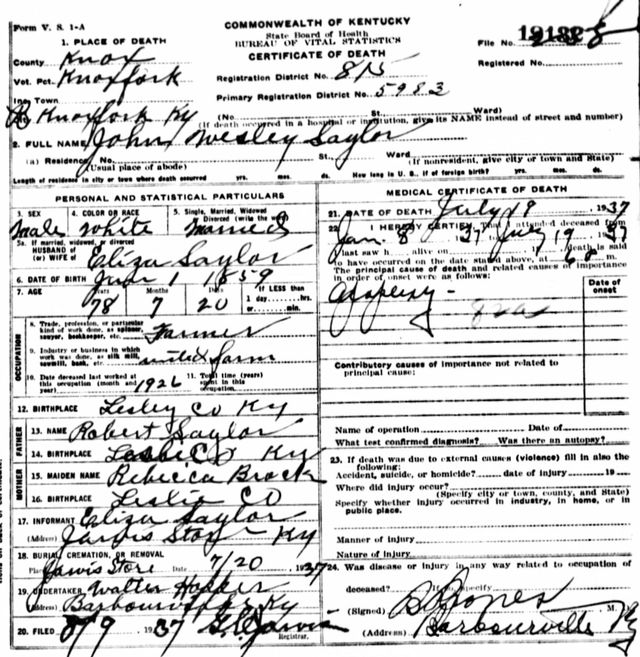 Form V. S. 1-A
COMMONWEALTH OF KENTUCKY
State Board of Health
BUREAU OF VITAL STATISTICS
CERTIFICATE OF DEATH
File No.
Registered No.
1. PLACE OF DEATH
County Knox
Vot. Pct. Knoxfork
Registration District No. 815
Primary Registration District No. 5983
Inc. Town
Knoxfork Ky (No. St. Ward)
(If death occurred in a hospital or institution, give its NAME instead of street and number)
2. FULL NAME John Wesley Saylor
(a) Residence. No. St., Ward
(Usual place of abode) (If nonresident, give city or town and State)
Length of residence in city or town where death occurred yrs. mos. ds. How long in U. S., if of foreign birth? yrs. mos. ds.
PERSONAL AND STATISTICAL PARTICULARS
3. SEX Male
4. COLOR OR RACE White
5. Single, Married, Widowed or Divorced (write the word) Married
5a. If married, widowed, or divorced
HUSBAND of
(or) WIFE of Eliza Saylor
6. DATE OF BIRTH 1 1859
7. AGE Years Months Days If LESS than 1 day, hrs. or min.
78 7 20
OCCUPATION
8. Trade, profession, or particular kind of work done, as spinner, sawyer, bookkeeper, etc. Farmer
9. Industry or business in which work was done, as silk mill, sawmill, bank, etc. farm
10. Date deceased last worked at this occupation (month and year) 1926
11. Total time (years) spent in this occupation
12. BIRTHPLACE Lesley Co Ky
FATHER
13. NAME Robert Saylor
14. BIRTHPLACE Leslie Co Ky
MOTHER
15. MAIDEN NAME Rebecca Brock
16. BIRTHPLACE Leslie CO
17. INFORMANT Eliza Saylor
(Address) Jarvis Stor - Ky
18. BURIAL, CREMATION, OR REMOVAL
Place Jarvis Store Date 7/20 1937
19. UNDERTAKER Walter
(Address) Barbourville Ky
20. FILED 8/9 1937 Jarvis
Registrar.
MEDICAL CERTIFICATE OF DEATH
21. DATE OF DEATH July 19 1937
22. I HEREBY CERTIFY, That I attended deceased from
Jan. 8 37 July 19 37
I last saw h alive on death is said
to have occurred on the date stated above, at m.
The principal cause of death and related causes of importance in order of onset were as follows:
Date of onset
Contributory causes of importance not related to principal cause:
Name of operation Date of
What test confirmed diagnosis? Was there an autopsy?
23. If death was due to external causes (violence) fill in also the following:
Accident, suicide, or homicide? date of injury 19
Where did injury occur?
(Specify city or town, county, and State)
Specify whether injury occurred in industry, in home, or in public place.
Manner of injury
Nature of injury
24. Was disease or injury in any way related to occupation of deceased? If so, specify
(Signed) Jones M. D.
(Address) Barbourville Ky